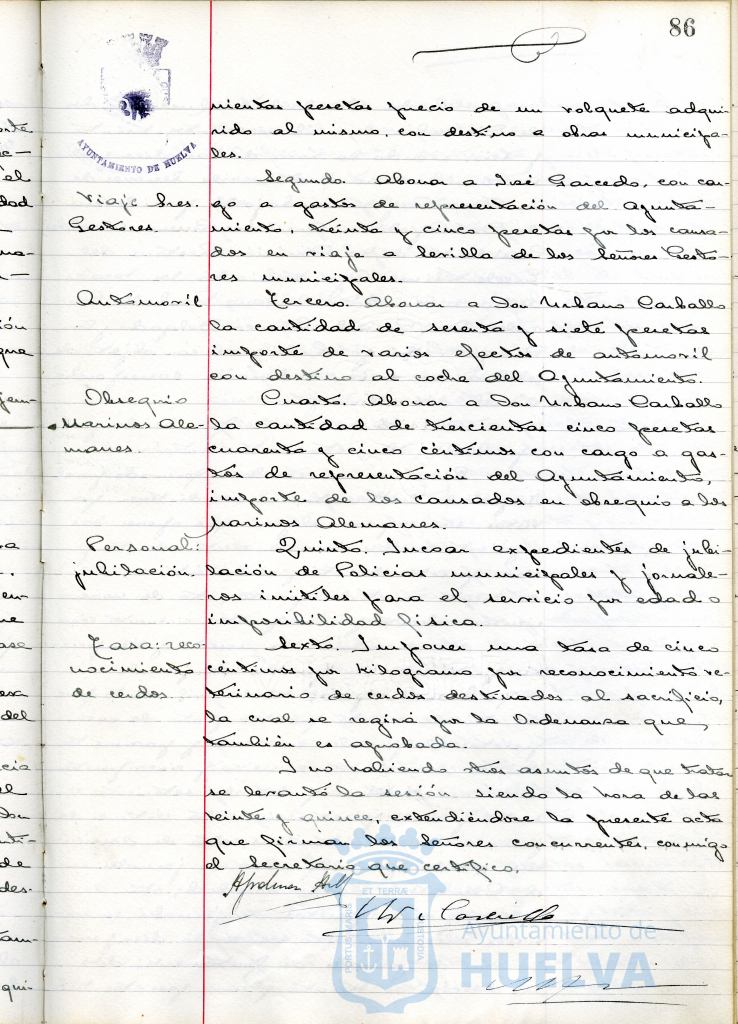 86
AYUNTAMIENTO DE HUELVA
nientas pesetas precio de un volquete adqui-
rido al mismo, con destino a obras municipa-
les.
Viaje Sres.
Gestores.
Segundo. Abonar a José Garcedo, con car-
go a gastos de representación del Ayunta-
miento, treinta y cinco pesetas por los causa-
dos en viaje a Sevilla de los Señores Gesto-
res municipales.
Automovil
Tercero. Abonar a Don Urbano Carballo
la cantidad de sesenta y siete pesetas
importe de varios efectos de automovil
con destino al coche del Ayuntamiento.
Obsequio
Marinos Ale-
manes.
Cuarto. Abonar a Don Urbano Carballo
la cantidad de trescientas cinco pesetas
cuarenta y cinco céntimos con cargo a gas-
tos de representación del Ayuntamiento,
importe de los causados en obsequio a los
Marinos Alemanes.
Personal:
jubilación.
Quinto. Incoar expedientes de jubi-
lación de Policías municipales y jornale-
ros inútiles para el servicio por edad o
imposibilidad física.
Tasa: reco-
nocimiento
de cerdos.
Sexto. Imponer una tasa de cinco
céntimos por kilogramo por reconocimiento ve-
terinario de cerdos destinados al sacrificio,
la cual se regirá por la Ordenanza que
también es aprobada.
I no habiendo otros asuntos de que tratar
se levantó la sesión siendo la hora de las
veinte y quince, extendiéndose la presente acta
que firman los Señores concurrentes, conmigo
el Secretario que certifico.
ET TERRAE
PORTUS MARIS
CUSTODIA
Ayuntamiento de
HUELVA